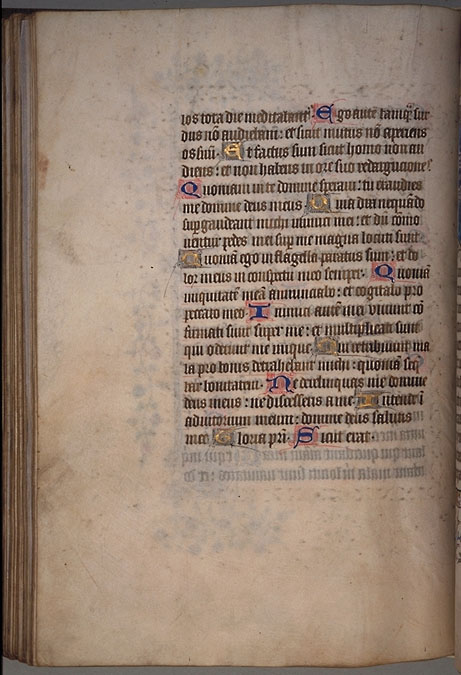 los tota die meditabant᷑. Ego autē tamq̄ sur
dus nō audiebam: et sicut mutus nō aperiens
os suū. Et factus sum sicut homo non au
diens: et non habens in ore suo redargucione᷑s
Quoniam in te domine speraui: tu exaudies
me domine deus meus. Quia dixi nequādo
suꝑgaudeant michi inimici mei: et dū cōmo
uentur pedes mei suꝑ me magna locuti sunt
Quoniā ego in flagella paratus sum: et do
lor meus in conspectu meo semper. Quoniā
iniquitatē meā annunciabo: et cogitabo pro
peccato meo. Inimici autē mei viuunt cō
firmati sunt super me: et multiplicati sunt
qui oderunt me inique. Qui retribuunt ma
la pro bonis detrahebant michi: quoniā seq̄
bar bonitatem. Ne derelinquas me domine
deus meus: ne discesseris a me. Intende ī
adiutorium meum: domine deus salutis
mee. Gloria pr̄i. Sicut erat.